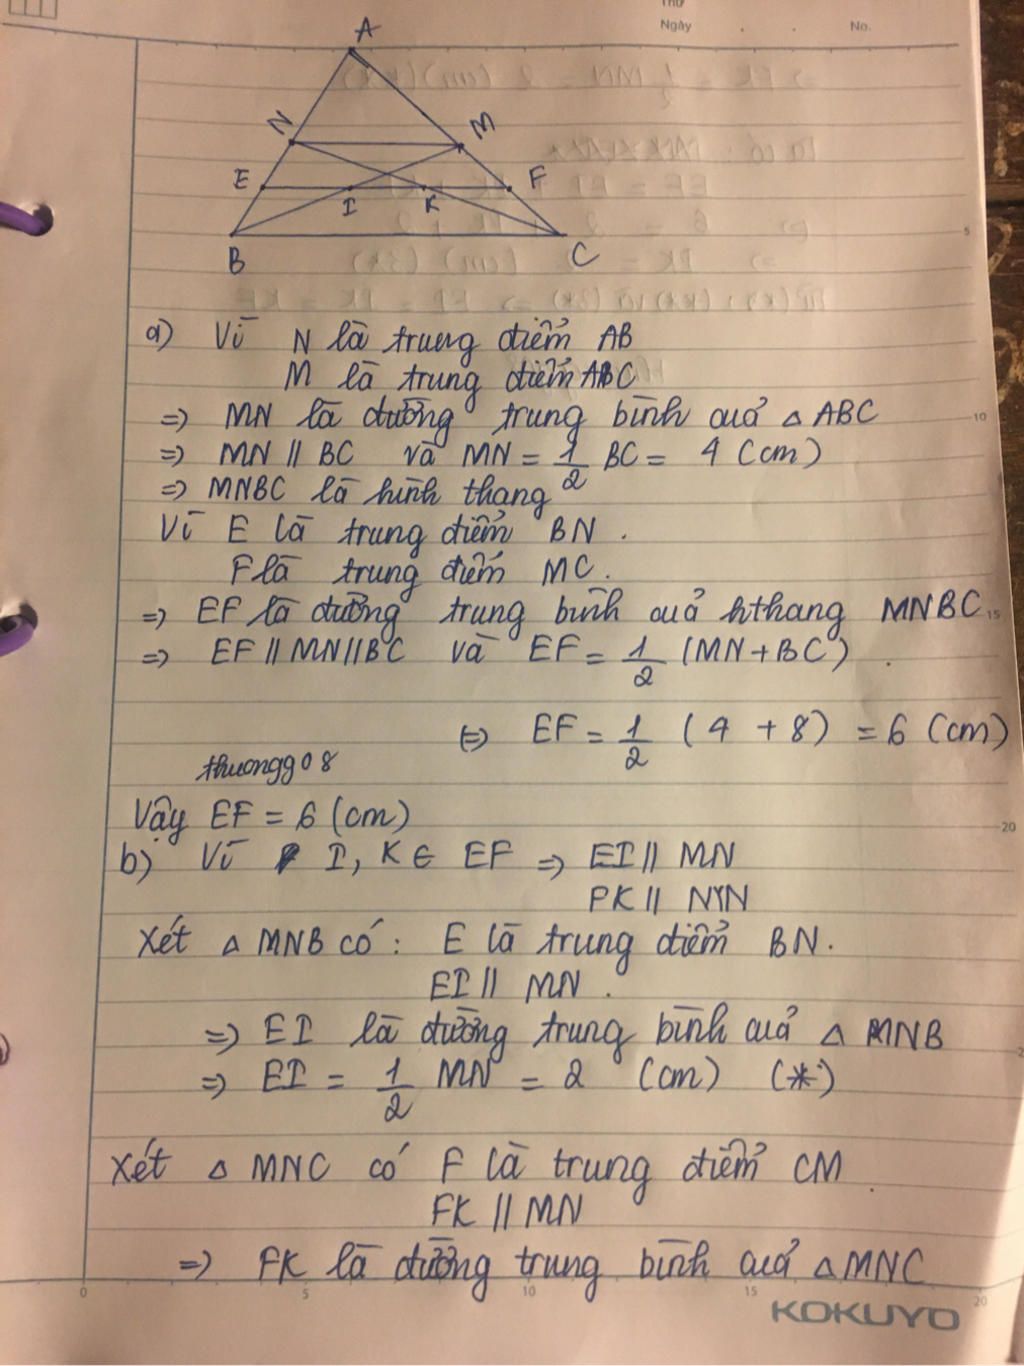 Thứ
Ngày . . No.
A
N
M
E
F
I
K
B
C
5
a) Vì N là trung điểm AB
M là trung điểm ABC
=> MN là đường trung bình quả △ ABC
10
=> MN // BC và MN = 1/2 BC = 4 (cm)
=> MNBC là hình thang
Vì E là trung điểm BN .
F là trung điểm MC .
=> EF là đường trung bình quả hthang MNBC
15
=> EF // MN // BC và EF = 1/2 (MN + BC) .
<=> EF = 1/2 ( 4 + 8 ) = 6 (cm)
thuongg08
Vậy EF = 6 (cm)
20
b) Vì I, K ∈ EF => EI // MN
FK // MN
Xét △ MNB có : E là trung điểm BN .
EI // MN .
=> EI là đường trung bình quả △ MNB
=> EI = 1/2 MN = 2 (cm) (*)
Xét △ MNC có F là trung điểm CM .
FK // MN
=> FK là đường trung bình quả △ MNC
0 5 10 15 20
KOKUYO